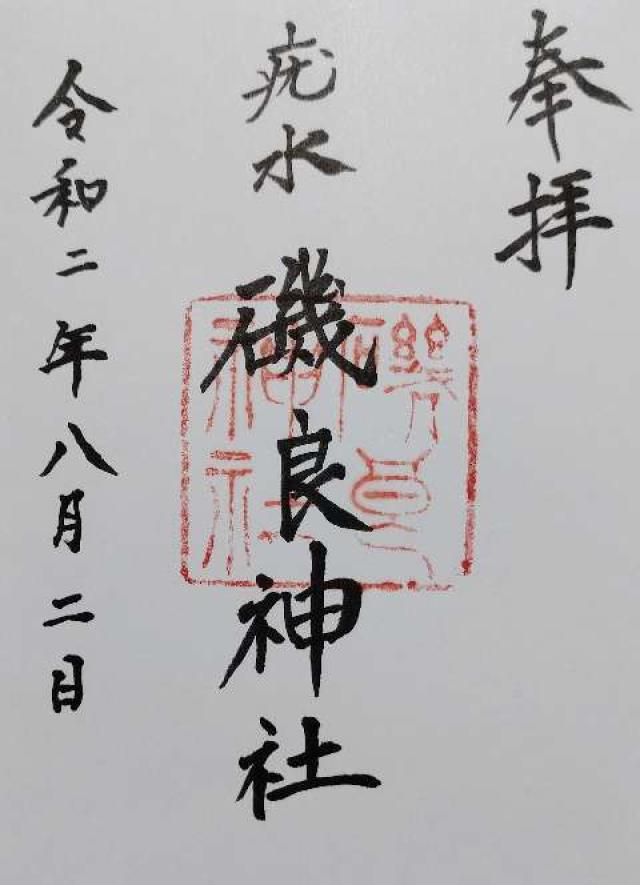 奉拝
疣水
磯良神社
令和二年八月二日
磯良神社